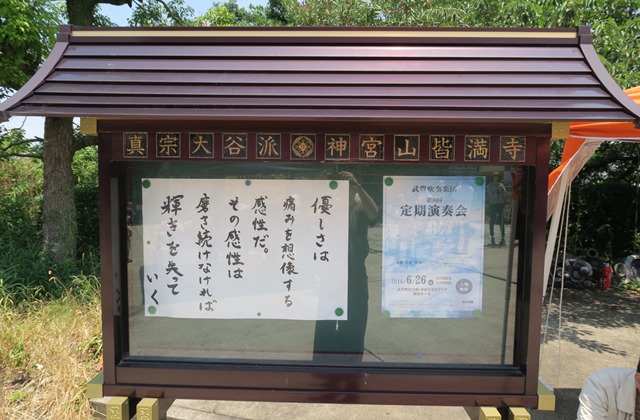 真宗大谷派 神宮山皆満寺
優しさは
痛みを想像する
感性だ。
その感性は
磨き続けなければ
輝きを失って
いく
武豊吹奏楽団
第8回
定期演奏会
2016/6/26
入場無料